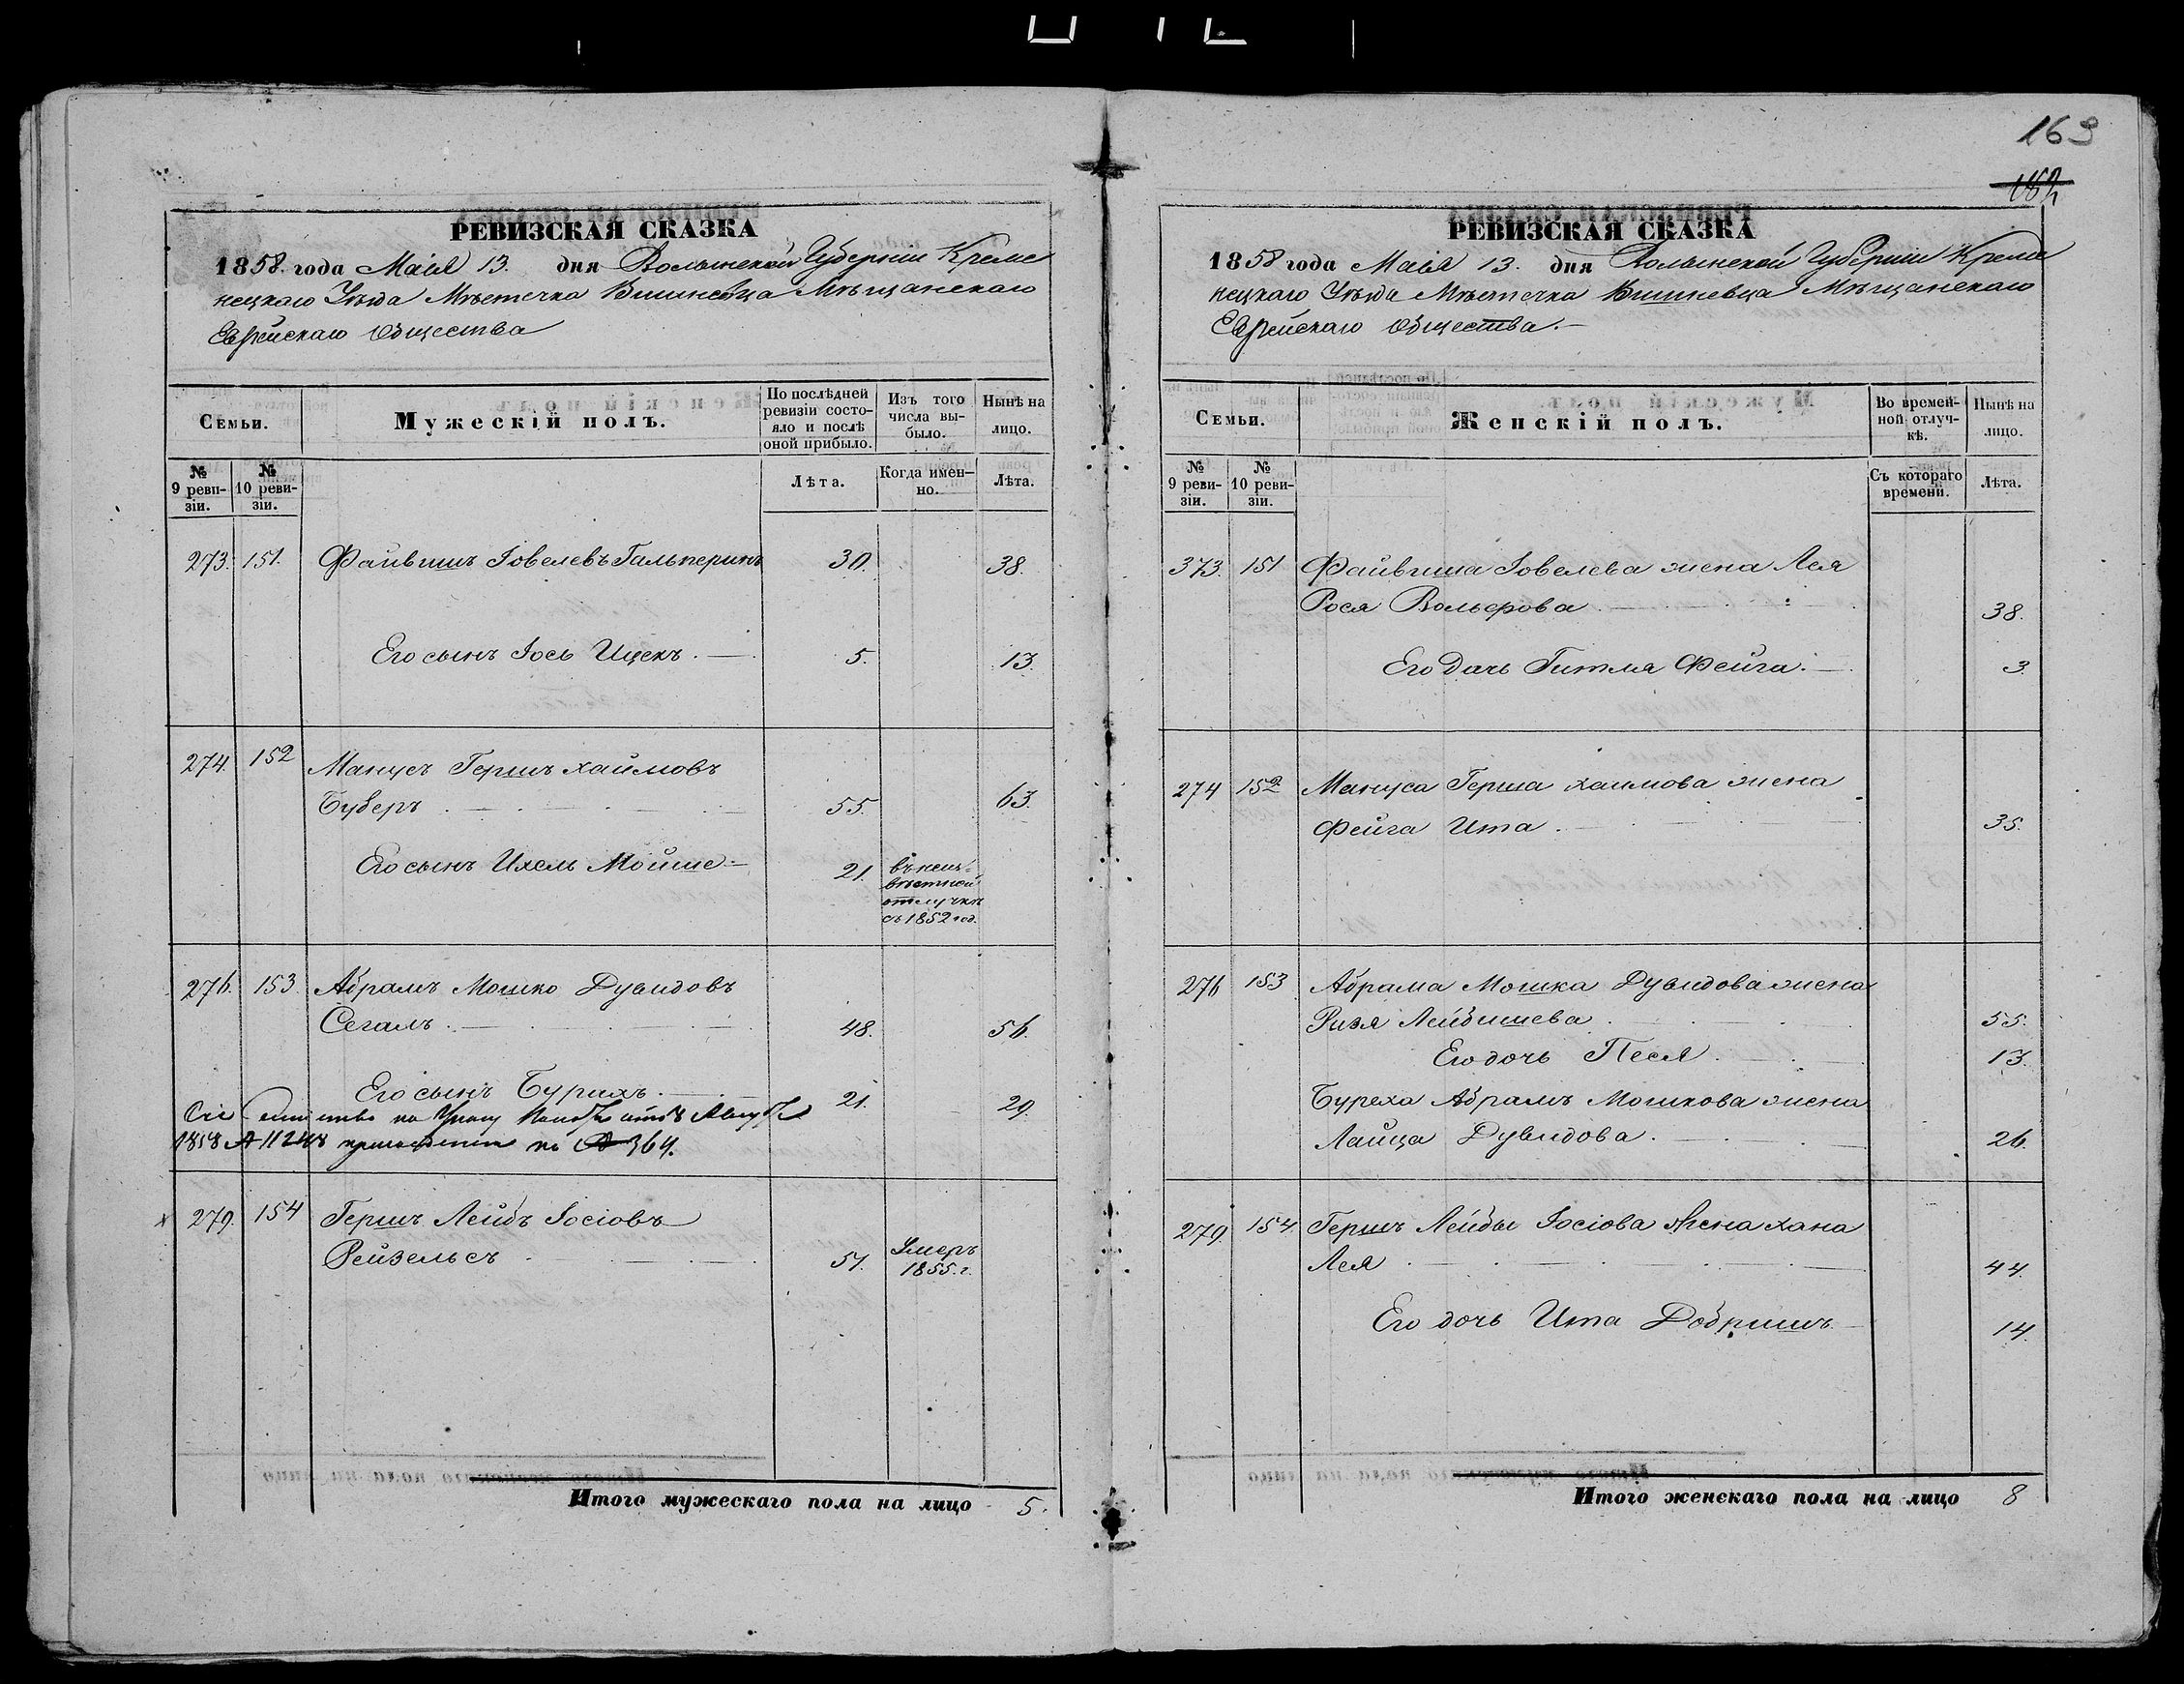 163
184
РЕВИЗСКАЯ СКАЗКА
1858 года Маія 13. дня Волынской Губерніи Креме
нецкаго Уѣзда Мѣстечка Вишневца Мѣщанскаго
Еврейскаго Общества
Семьи.
Мужескій полъ.
По послѣдней ревизіи состо-
яло и послѣ оной прибыло.
Изъ того числа вы-
было.
Нынѣ на лицо.
№ 9 реви-
зіи.
№ 10 реви-
зіи.
Лѣта.
Когда имен-
но.
Лѣта.
273. 151. Файвишъ Іовелевъ Гальперинъ 30. 38.
Его сынъ Іось Ицекъ. 5. 13.
274. 152 Манусъ Гершъ Хаймовъ
Буберъ 55. 63.
Его сынъ Ихель Мойше 21. въ неиз-
вѣстной
отлучкѣ
съ 1852 год.
276. 153. Абрамъ Мошко Дувидовъ
Сегалъ 48. 56.
Его сынъ Бурахъ. 21. 29.
Сіе семейство по Указу Палаты отъ 8 Августа
1858 № 11248 причислены по № 364.
279. 154 Гершъ Лейбъ Іосіовъ
Рейзельсъ 51. Умеръ
1855. г.
Итого мужескаго пола на лицо 5.
РЕВИЗСКАЯ СКАЗКА
1858 года Маія 13. дня Волынской Губерніи Креме
нецкаго Уѣзда Мѣстечка Вишневца Мѣщанскаго
Еврейскаго Общества.
Семьи.
Женскій полъ.
Во времен-
ной отлуч-
кѣ.
Нынѣ на лицо.
№ 9 реви-
зіи.
№ 10 реви-
зіи.
Съ котораго времени.
Лѣта.
373. 151 Файвиша Іовелева жена Лея
Рося Вольфова 38.
Его дочь Гитля Фейга. 3.
274 152 Мануса Герша Хаимова жена
Фейга Ита. 35.
276 153 Абрама Мошка Дувидова жена
Ривя Лейбишева 55.
Его дочь Песя. 13.
Буреха Абрамъ Мошкова жена
Лайца Дувидова. 26.
279. 154. Гершъ Лейбы Іосіова жена Хана
Лея 44.
Его дочь Ита Добришъ 14.
Итого женскаго пола на лицо 8